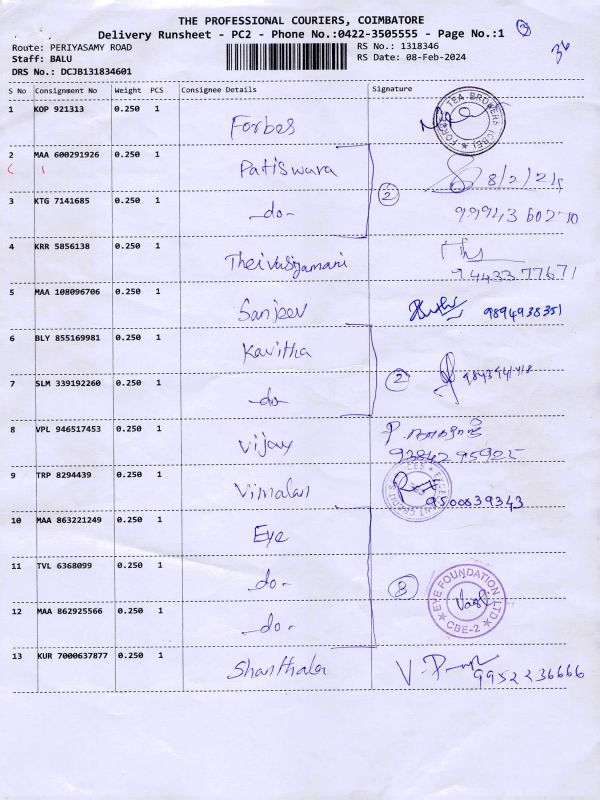 THE PROFESSIONAL COURIERS, COIMBATORE
Delivery Runsheet - PC2 - Phone No.:0422-3505555 - Page No.:1
Route: PERIYASAMY ROAD
Staff: BALU
DRS No.: DCJB131834601
RS No.: 1318346
RS Date: 08-Feb-2024
S No Consignment No Weight PCS Consignee Details Signature
1 KOP 921313 0.250 1 Forbes
2 MAA 600291926 0.250 1 Patiswara 8/2/24
3 KTG 7141685 0.250 1 -do- 2 99943 60210
4 KRR 5856138 0.250 1 Theivasigamani 9443377671
5 MAA 108096706 0.250 1 Sanjeev 9894938351
6 BLY 855169981 0.250 1 Kavitha
7 SLM 339192260 0.250 1 -do- 2
8 VPL 946517453 0.250 1 Vijay 9384295925
9 TRP 8294439 0.250 1 Vimalan 9500839343
10 MAA 863221249 0.250 1 Eye
11 TVL 6368099 0.250 1 -do- 3
12 MAA 862925566 0.250 1 -do- EYE FOUNDATION LTD CBE-2
13 KUR 7000637877 0.250 1 Shanthala 9952236666